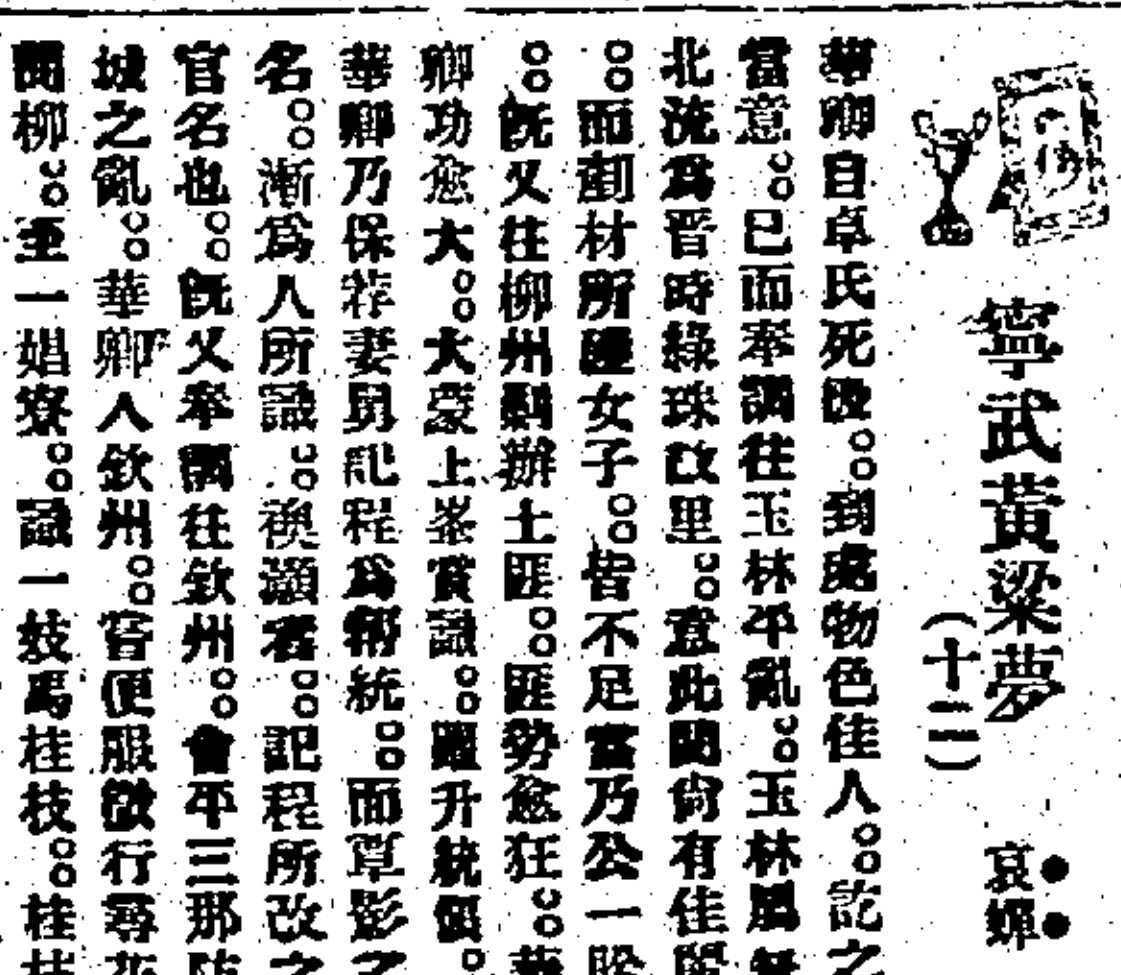 寧武黃梁夢
(十二)
哀蟬
華卿自卓氏死後。到處物色佳人。訖之
當意。已而奉調往玉林平亂。玉林屬
北流爲晋時綠珠故里。意此間尙有佳麗
。而剳材所睡女子。皆不足當乃公一
。旣又往柳州剿辦土匪。匪勢愈狂。華
卿功愈大。大蒙上峯賞識。躍升統領。
華卿乃保荐妻舅記程爲帮統。而覃影之
名。漸爲人所識。禊灝者。記程所改之
官名也。旣又奉調往欽州。會平三那防
城之亂。華卿人欽州。嘗便服微行尋花
問柳。至一娼寮。識一妓爲桂枝。桂枝